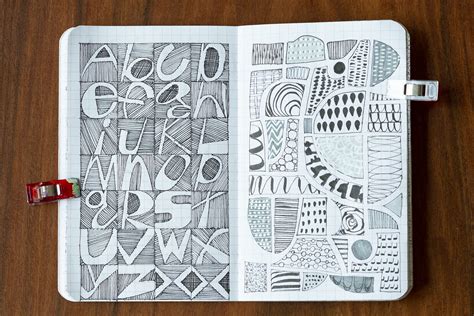 A b C D
e f g h
i j K L
M n O P
q r S T
U V W X
Y Z X X